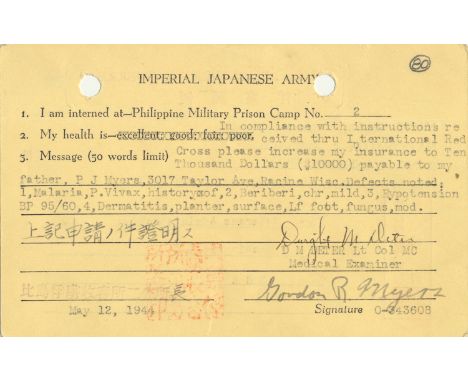 80
IMPERIAL JAPANESE ARMY
1. I am interned at—Philippine Military Prison Camp No. 2
In compliance with instructions re
2. My health is—excellent; good; fair; poor. ceived thru International Red
Cross please increase my insurance to Ten
3. Message (50 words limit) Thousand Dollars ($10000) payable to my
father. P J Myers, 3017 Taylor Ave, Racine Wisc. Defects noted
1, Malaria, P.Vivax, history of, 2, Beriberi, chr, mild, 3, Hypotension
BP 95/60, 4, Dermatitis, planter, surface, Lf foot, fungus, mod.
上記申請ノ件證明ス
Dwight M. Deter
D M DETER Lt Col MC
Medical Examiner
長
Gordon R. Myers
May 12, 1944
Signature O-343608